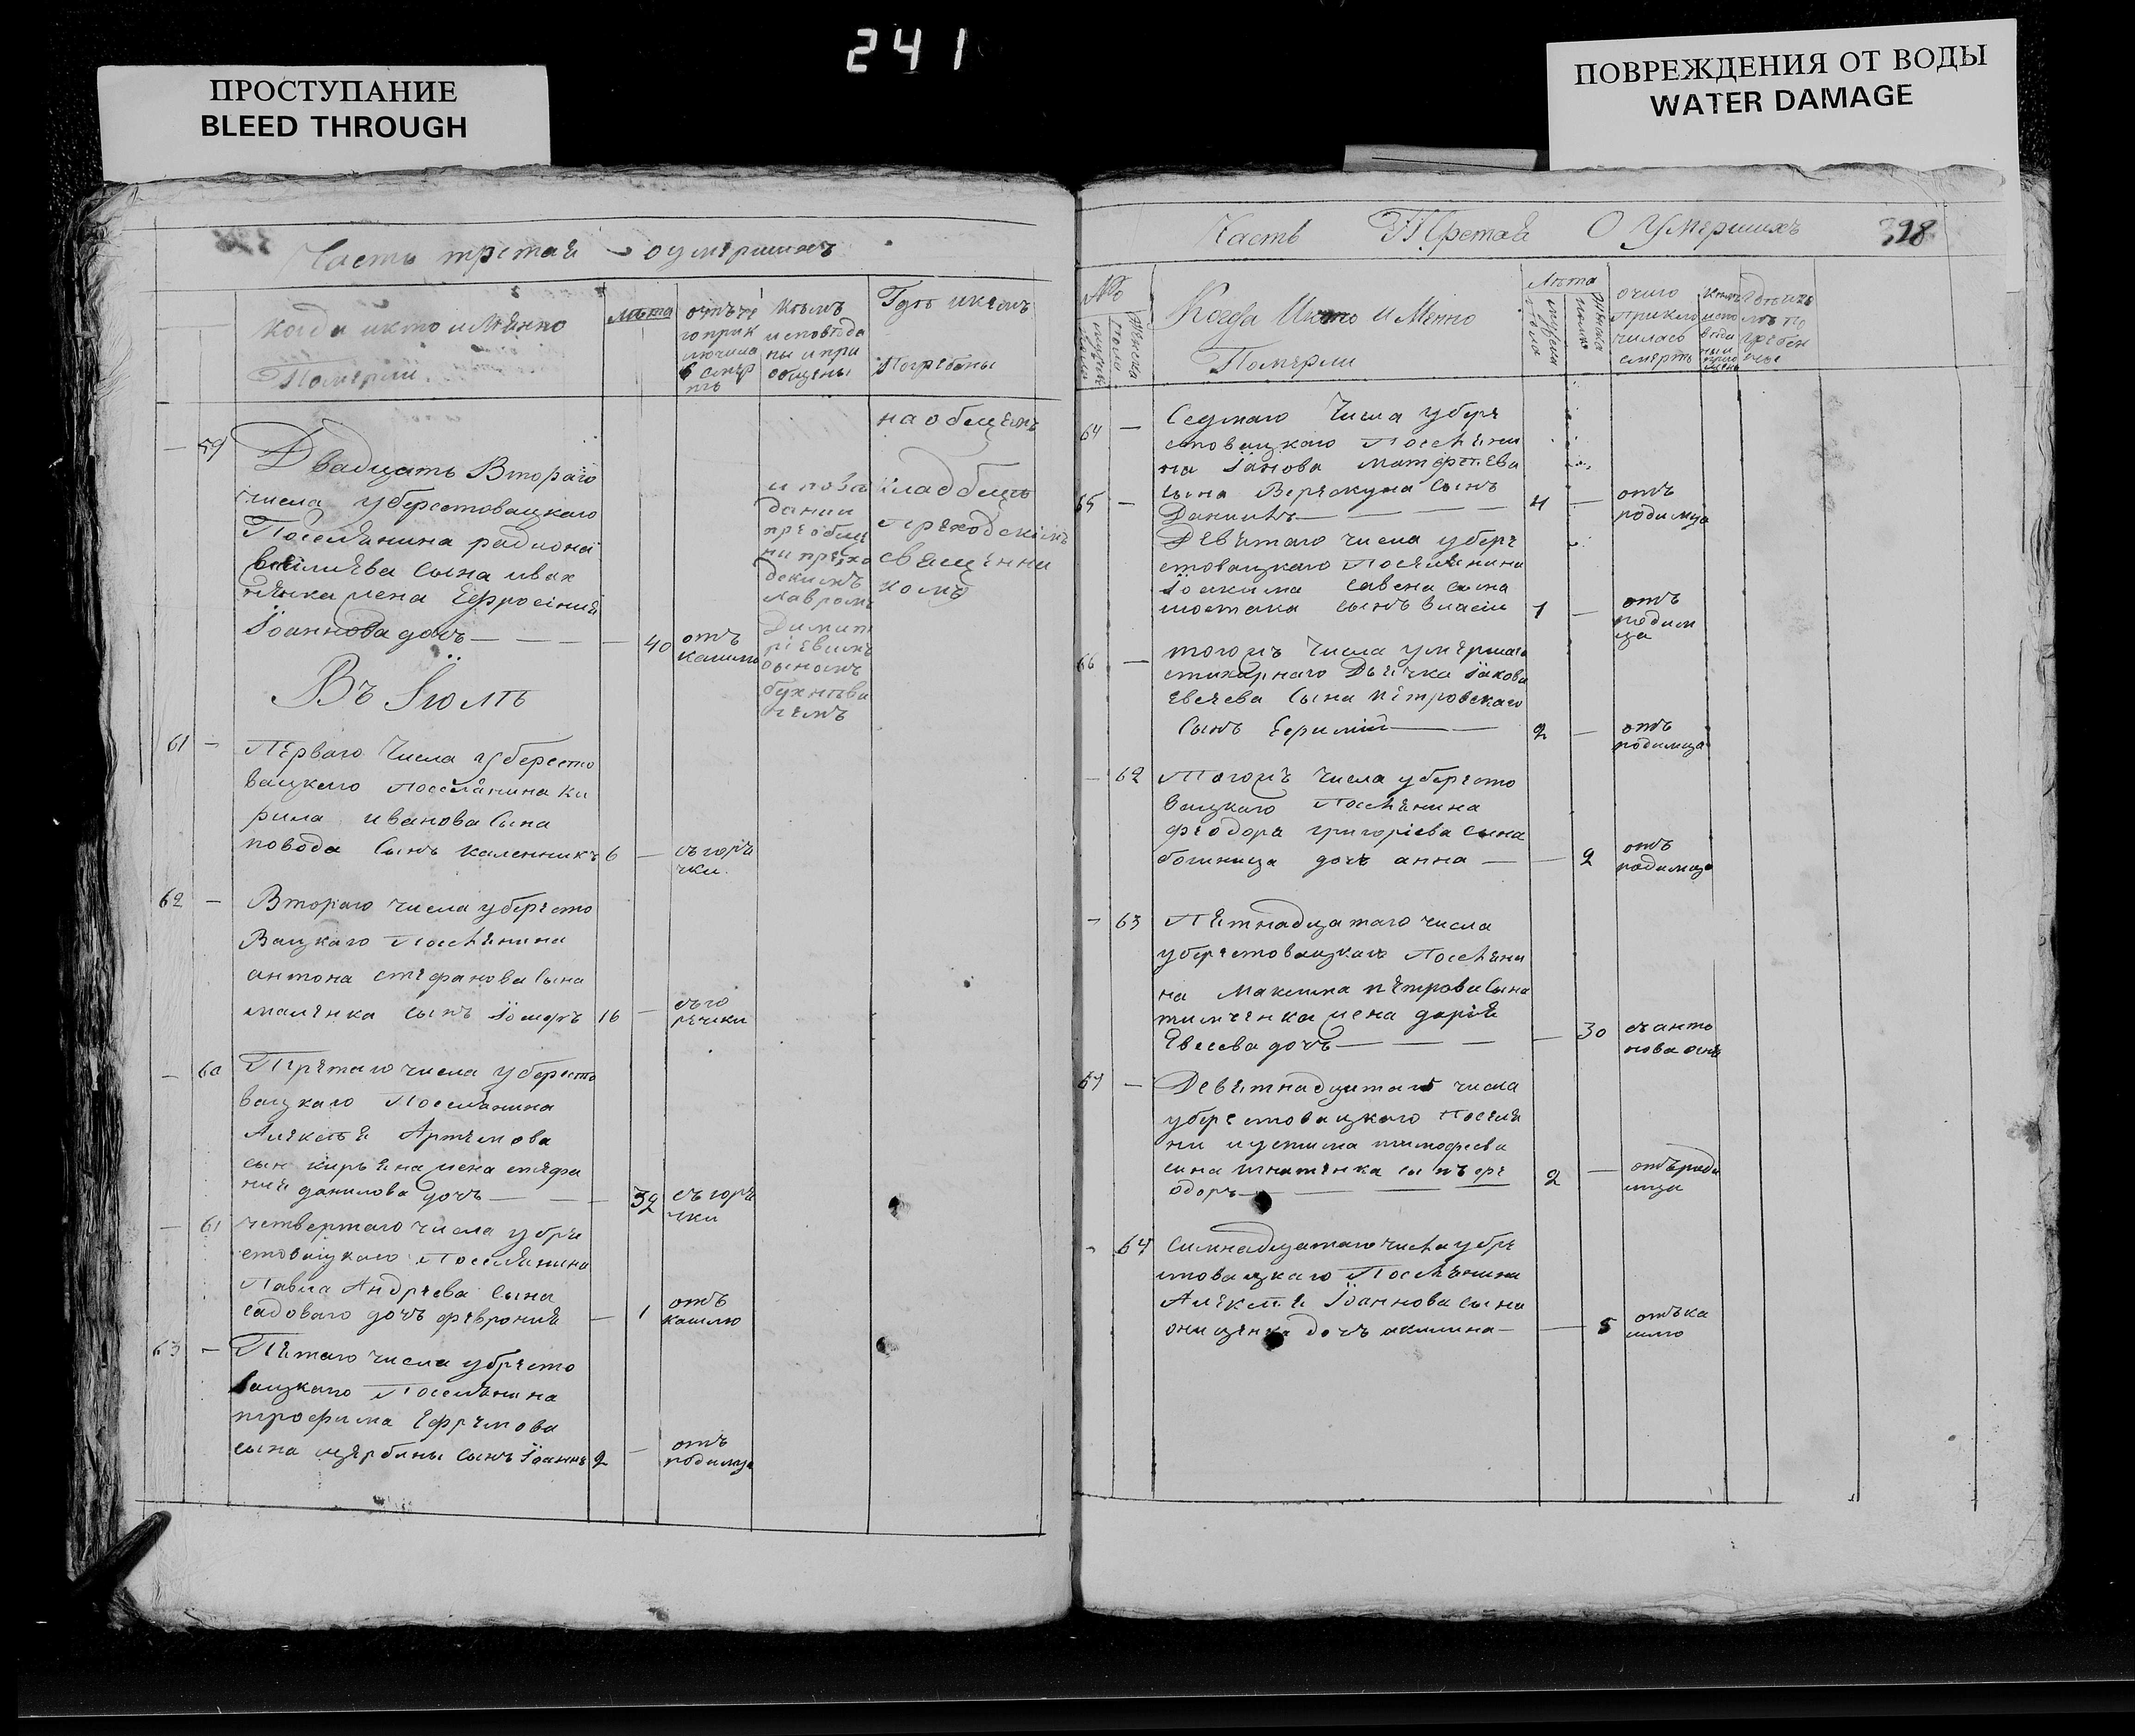 241
ПРОСТУПАНИЕ
BLEED THROUGH
ПОВРЕЖДЕНИЯ ОТ ВОДЫ
WATER DAMAGE
Часть третая о умершихъ
когда икто имѣнно
Померли
лѣта
отъ че
го прик
лючила
с смер
ть
Кѣмъ
исповѣда
ны и при
общены
Гдѣ икѣмъ
Погребены
59
Двадцать Втораго
числа уберестовацкаго
Поселянина радиона
василиева сына ивах
ненка жена Ефросиния
Іоаннова дочь
40
отъ
кашлю
исповѣ
дании
приобще
ни прихо
дскимъ
лавромъ
Димит
ріевимъ
сыномъ
на общемъ
кладбищѣ
Приходскімъ
свящѣнни
комъ
Въ Іюлѣ
61
Перваго Числа убересто
вацкаго поселянина Ки
рила иванова Сына
повода Сынъ каленникъ
6
съ горя
чки
62
Втораго числа убересто
Вацкаго Поселянина
антона стефанова Сына
маленка сынъ Іосифъ
16
съ го
рячки
60
Третаго числа убересто
вацкаго Поселянина
Алексѣя Артемова
сын кирьяна жена стефа
ния данилова дочъ
32
съ горя
чки
61
четвертаго числа убере
стовацкаго Поселянина
Павла Андреева Сына
садоваго дочъ феврония
1
отъ
кашлю
63
Пятаго числа убресто
вацкаго Поселянина
трофима Ефремова
сына щербины сынъ Іоаннъ
2
отъ
родимца
Часть Третая О Умершихъ
398
№
мужеска
пола
женска
Когда Икто И Менно
Померли
Лѣта
отчего
Приклю
чилась
смерть
Кѣмъ
испо
веда
ны и
Гдѣ икѣ
мъ по
гребен
ные
64
Седмаго Числа убере
стовацкаго Поселяни
на Іакова матфѣева
сына Верескуна Сынъ
Даниилъ
4
отъ
родимца
65
Девятаго числа убере
стовацкаго Поселянина
Іоакима савена сына
шостака сынъ власи
1
отъ
родим
ца
66
тогожъ Числа умершаго
стихарнаго Дьячка Іакова
евсеева Сына петровскаго
Сынъ Еримий
2
отъ
родимца
62
Тогожъ числа убересто
вацкаго Поселянина
феодора григоріева Сына
дочъ анна
2
отъ
родимца
63
Пятнадцатаго числа
уберестовацкаго Поселяни
на Максима петрова Сына
тимченка жена дарія
Евсеева дочъ
30
съ анто
нова огня
67
Девятнадцатаго числа
уберестовацкаго Поселя
ни устима тимофеева
сина игнатенка сынъ фе
одоръ
2
отъ роди
мца
64
Симнадцатаго числа убере
стовацкаго Поселянина
Алексѣя Іоаннова сына
онищенка дочъ акилина
5
отъ ка
шлю